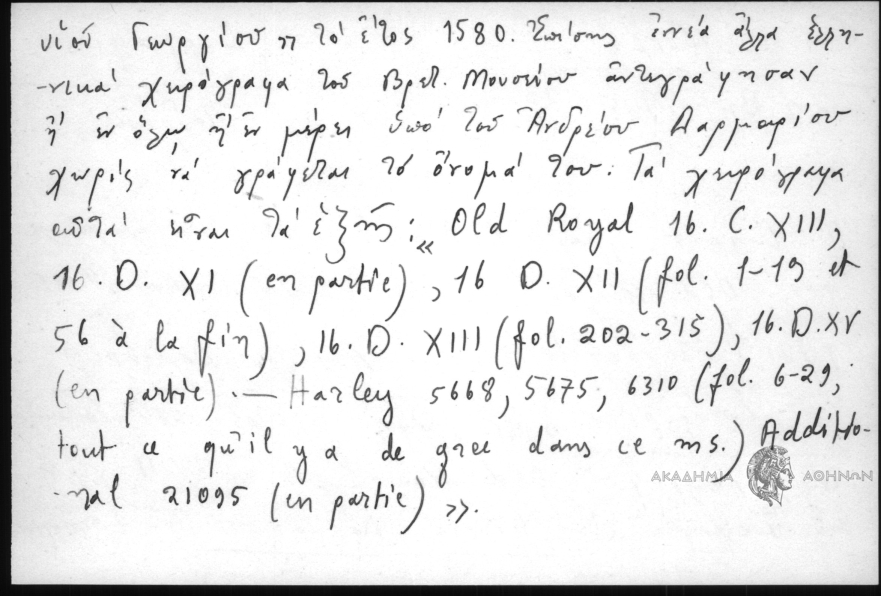 υἱοῦ Γεωργίου τὸ ἔτος 1580. Ἐπίσης ἐννέα ἄλλα ἑλλη-
-νικὰ χειρόγραφα τοῦ Βρετ. Μουσείου ἀντεγράφησαν
ἢ ἐν ὅλῳ ἢ ἐν μέρει ὑπὸ τοῦ Ἀνδρέου Δαρμαρίου
χωρὶς νὰ γράφεται τὸ ὄνομά του. Τὰ χειρόγραφα
αὐτὰ εἶναι τὰ ἑξῆς: « Old Royal 16. C. XIII,
16. D. XI (en partie), 16 D. XII (fol. 1-19 et
56 à la fin), 16. D. XIII (fol. 202-315), 16. D. XV
(en partie). — Harley 5668, 5675, 6310 (fol. 6-29,
tout ce qu'il y a de grec dans ce ms.) Additio-
-nal 21095 (en partie) ».
ΑΚΑΔΗΜΙΑ ΑΘΗΝΩΝ